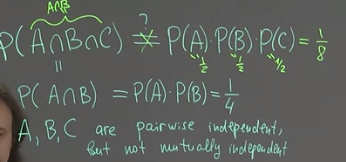 A∩B
?
P(A∩B∩C) ≠ P(A)·P(B)·P(C) = 1/8
" 1/2 " 1/2 " 1/2
"
P(A∩B) = P(A)·P(B) = 1/4
A, B, C are pairwise independent,
but not mutually independent